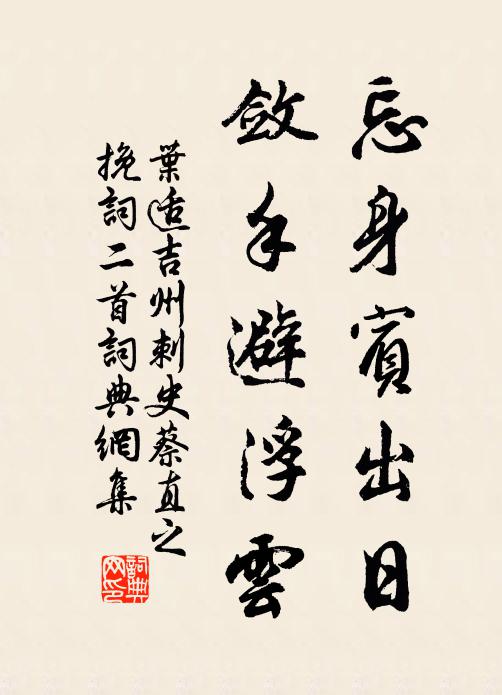 忘身賓出日
斂手避浮雲
葉適吉州刺史蔡直之
挽詞二首詞典網集
詞典
网印